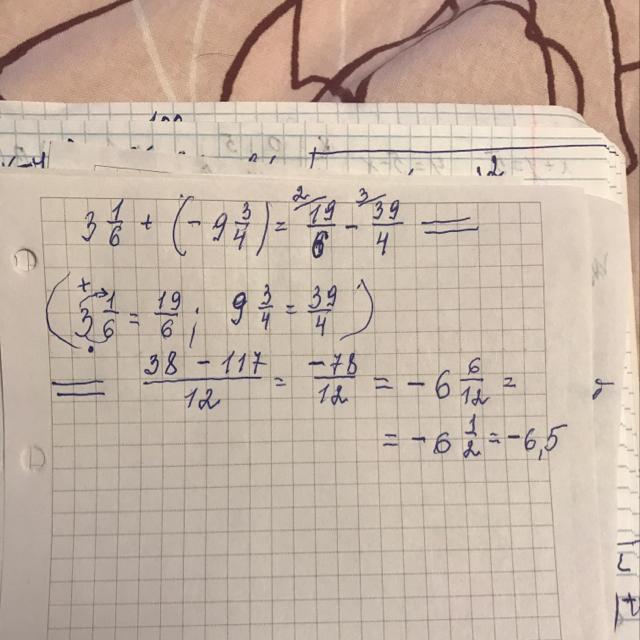 3 1/6 + (- 9 3/4) = 2/ 19/6 - 3/ 39/4 =
( + 3 1/6 = 19/6 ; 9 3/4 = 39/4 )
= 38 - 117 / 12 = -78/12 = - 6 6/12 =
= - 6 1/2 = -6,5